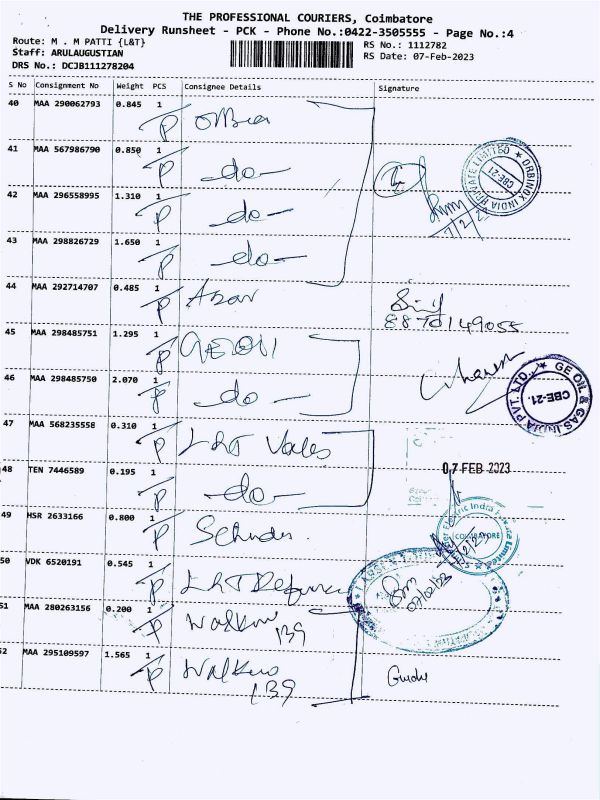 THE PROFESSIONAL COURIERS, Coimbatore
Delivery Runsheet - PCK - Phone No.:0422-3505555 - Page No.:4
Route: M . M PATTI {L&T}
RS No.: 1112782
Staff: ARULAUGUSTIAN
RS Date: 07-Feb-2023
DRS No.: DCJB111278204
S No Consignment No Weight PCS Consignee Details Signature
40 MAA 290062793 0.845 1
P
41 MAA 567986790 0.850 1
P -do-
ORBINOX INDIA PRIVATE LIMITED ★ CBE-21
42 MAA 296558995 1.310 1
P -do-
7/2/23
43 MAA 298826729 1.650 1
P -do-
44 MAA 292714707 0.485 1
P
8870149055
45 MAA 298485751 1.295 1
P
46 MAA 298485750 2.070 1
P -do-
GE OIL & GAS INDIA PVT. LTD., ★ CBE-21.
47 MAA 568235558 0.310 1
P L&T Valves
07 FEB 2023
48 TEN 7446589 0.195 1
P -do-
49 HSR 2633166 0.800 1
P
Electric India Private Limited
COIMBATORE
50 VDK 6520191 0.545 1
P L&T Defence
07/02/23
51 MAA 280263156 0.200 1
P
139
52 MAA 295109597 1.565 1
P
139